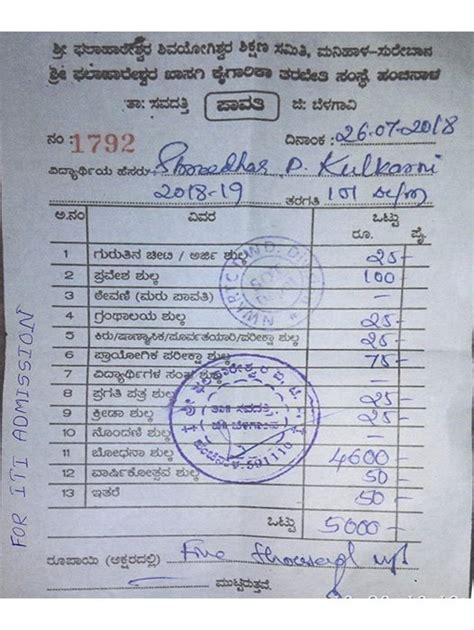 ಶ್ರೀ ಫಲಾಹಾರೇಶ್ವರ ಶಿವಯೋಗಿಶ್ವರ ಶಿಕ್ಷಣ ಸಮಿತಿ, ಮನಿಹಾಳ-ಸುರೇಬಾನ
ಶ್ರೀ ಫಲಾಹಾರೇಶ್ವರ ಖಾಸಗಿ ಕೈಗಾರಿಕಾ ತರಬೇತಿ ಸಂಸ್ಥೆ ಹಂಚಿನಾಳ
ತಾ: ಸವದತ್ತಿ ಪಾವತಿ ಜಿ: ಬೆಳಗಾವಿ
ನಂ: 1792 ದಿನಾಂಕ: 26-07-2018
ವಿದ್ಯಾರ್ಥಿಯ ಹೆಸರು: Shreedhar D. Kulkarni
2018-19 ತರಗತಿ
ಅ.ನಂ ವಿವರ ಒಟ್ಟು
ರೂ. ಪೈ.
1 ಗುರುತಿನ ಚೀಟಿ / ಅರ್ಜಿ ಶುಲ್ಕ 25-
2 ಪ್ರವೇಶ ಶುಲ್ಕ 100-
3 ಠೇವಣಿ (ಮರು ಪಾವತಿ)
4 ಗ್ರಂಥಾಲಯ ಶುಲ್ಕ 25-
5 ಕಿರು/ಷಾಣ್ಮಾಸಿಕ/ಪೂರ್ವತಯಾರಿ/ಪರೀಕ್ಷಾ ಶುಲ್ಕ 25-
6 ಪ್ರಾಯೋಗಿಕ ಪರೀಕ್ಷಾ ಶುಲ್ಕ 75-
7 ವಿದ್ಯಾರ್ಥಿಗಳ ಸಂಘ ಶುಲ್ಕ
8 ಪ್ರಗತಿ ಪತ್ರ ಶುಲ್ಕ 25-
9 ಕ್ರೀಡಾ ಶುಲ್ಕ 25-
10 ನೊಂದಣಿ ಶುಲ್ಕ
11 ಬೋಧನಾ ಶುಲ್ಕ 4600-
12 ವಾರ್ಷಿಕೋತ್ಸವ ಶುಲ್ಕ 50-
13 ಇತರೆ 50-
ಒಟ್ಟು 5000-
ರೂಪಾಯಿ (ಅಕ್ಷರದಲ್ಲಿ) Five
ಮುಟ್ಟಿರುತ್ತವೆ.
FOR ITI ADMISSION